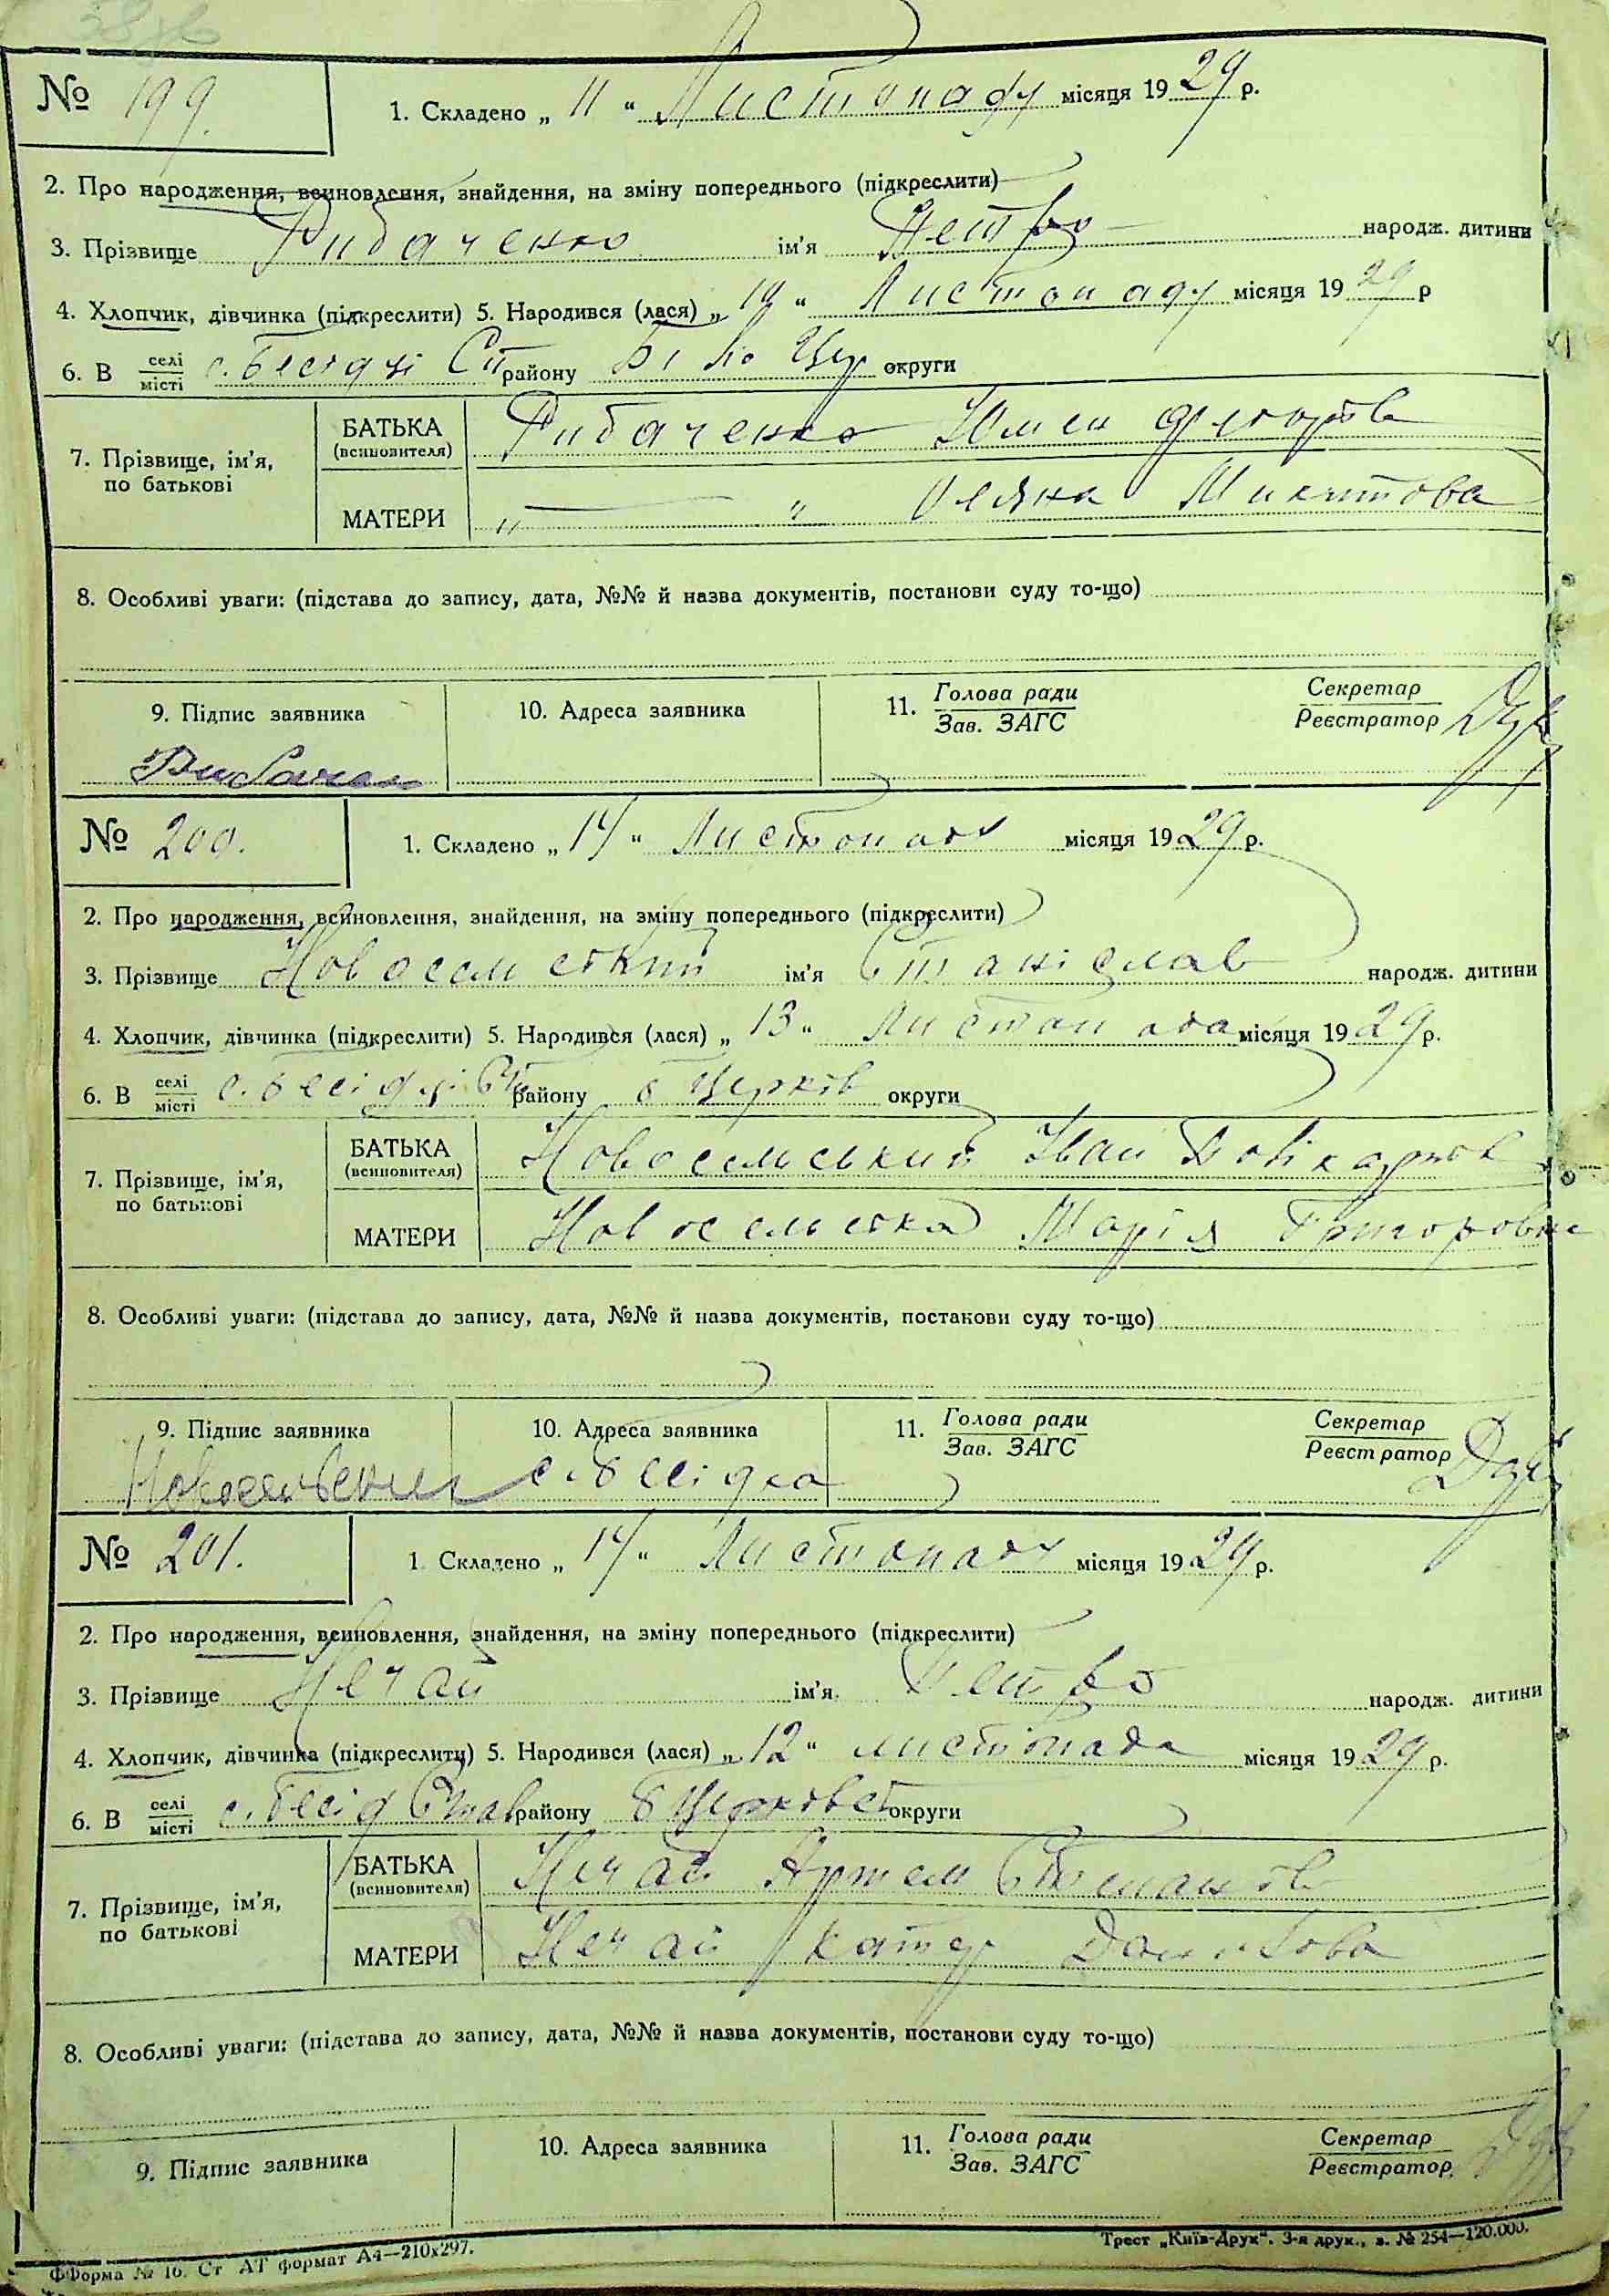 № 199.
1. Складено „ 11 “ Листопаду місяця 1929 р.
2. Про народження, всиновлення, знайдення, на зміну попереднього (підкреслити)
3. Прізвище Рибаченко ім'я Петро народж. дитини
4. Хлопчик, дівчинка (підкреслити) 5. Народився (лася) „ 10 “ Листопаду місяця 1929 р
6. В селі/місті с. Бесідці Ст району Біло Цер округи
БАТЬКА (всиновителя) Рибаченко Юмен
7. Прізвище, ім'я, по батькові
МАТЕРИ „ — “ Микитова
8. Особливі уваги: (підстава до запису, дата, №№ й назва документів, постанови суду то-що)
9. Підпис заявника 10. Адреса заявника 11. Голова ради/Зав. ЗАГС Секретар/Реєстратор
№ 200.
1. Складено „ 14 “ Листопаду місяця 1929 р.
2. Про народження, всиновлення, знайдення, на зміну попереднього (підкреслити)
3. Прізвище Новосельський ім'я Станіслав народж. дитини
4. Хлопчик, дівчинка (підкреслити) 5. Народився (лася) „ 13 “ Листопада місяця 1929 р.
6. В селі/місті с. Бесідці Ст району Б Церків округи
БАТЬКА (всиновителя) Новосельський Іван
7. Прізвище, ім'я, по батькові
МАТЕРИ Новосельська Марія Григоровна
8. Особливі уваги: (підстава до запису, дата, №№ й назва документів, постанови суду то-що)
9. Підпис заявника 10. Адреса заявника 11. Голова ради/Зав. ЗАГС Секретар/Реєстратор
Новосельский с. Бесідка
№ 201.
1. Складено „ 14 “ Листопаду місяця 1929 р.
2. Про народження, всиновлення, знайдення, на зміну попереднього (підкреслити)
3. Прізвище Нечай ім'я Петро народж. дитини
4. Хлопчик, дівчинка (підкреслити) 5. Народився (лася) „ 12 “ листопада місяця 1929 р.
6. В селі/місті с. Бесід Став району Б Церковс округи
БАТЬКА (всиновителя) Нечай Артем Степанов
7. Прізвище, ім'я, по батькові
МАТЕРИ Нечай Катер
8. Особливі уваги: (підстава до запису, дата, №№ й назва документів, постанови суду то-що)
9. Підпис заявника 10. Адреса заявника 11. Голова ради/Зав. ЗАГС Секретар/Реєстратор
Форма № 16. Ст АТ формат А4—210x297. Трест „Київ-Друк“. 3-я друк., з. № 254—120.000.